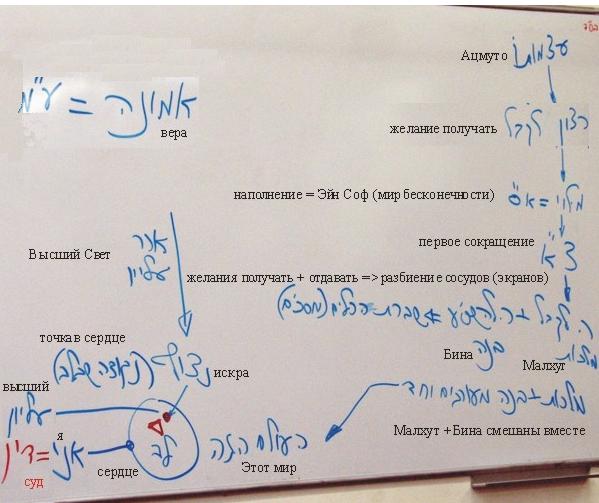 עצמותו
Ацмуто
אמונה =
вера
רצון לקבל
желание получать
מלוי = א"ס
наполнение = Эйн Соф (мир бесконечности)
первое сокращение
צ"א
אור
עליון
Высший Свет
желания получать + отдавать => разбиение сосудов (экранов)
ר. לקבל + ר. להשפיע => שברת הכלים (מסכים)
בנה
Бина
מלכות
Малхут
точка в сердце
ניצוץ (נקודה שבלב)
искра
высший
עליון
מלכות + בנה מעורבים יחד
Малхут + Бина смешаны вместе
я
אני = דין
суд
сердце
לב
העולם הזה
Этот мир